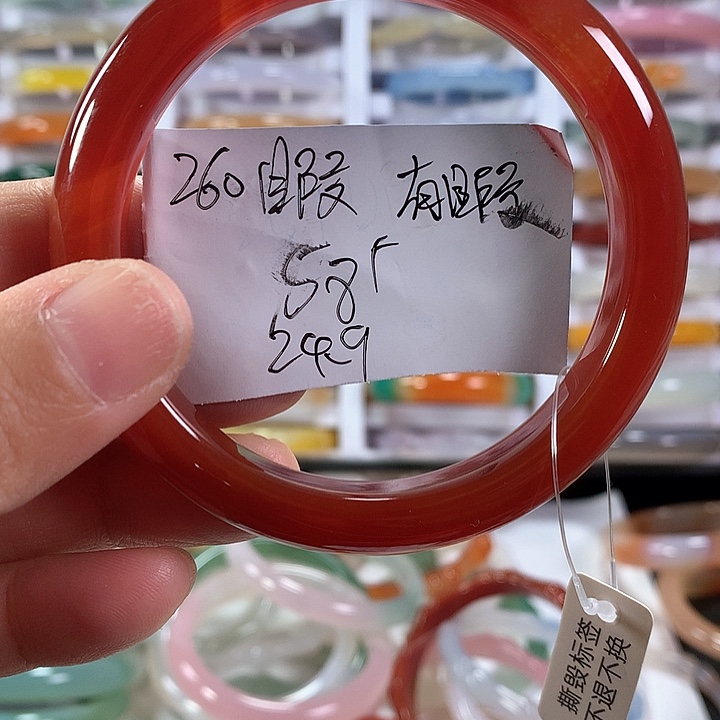 260 瑕 有瑕
58
24.9
撕毁标签
不退不换